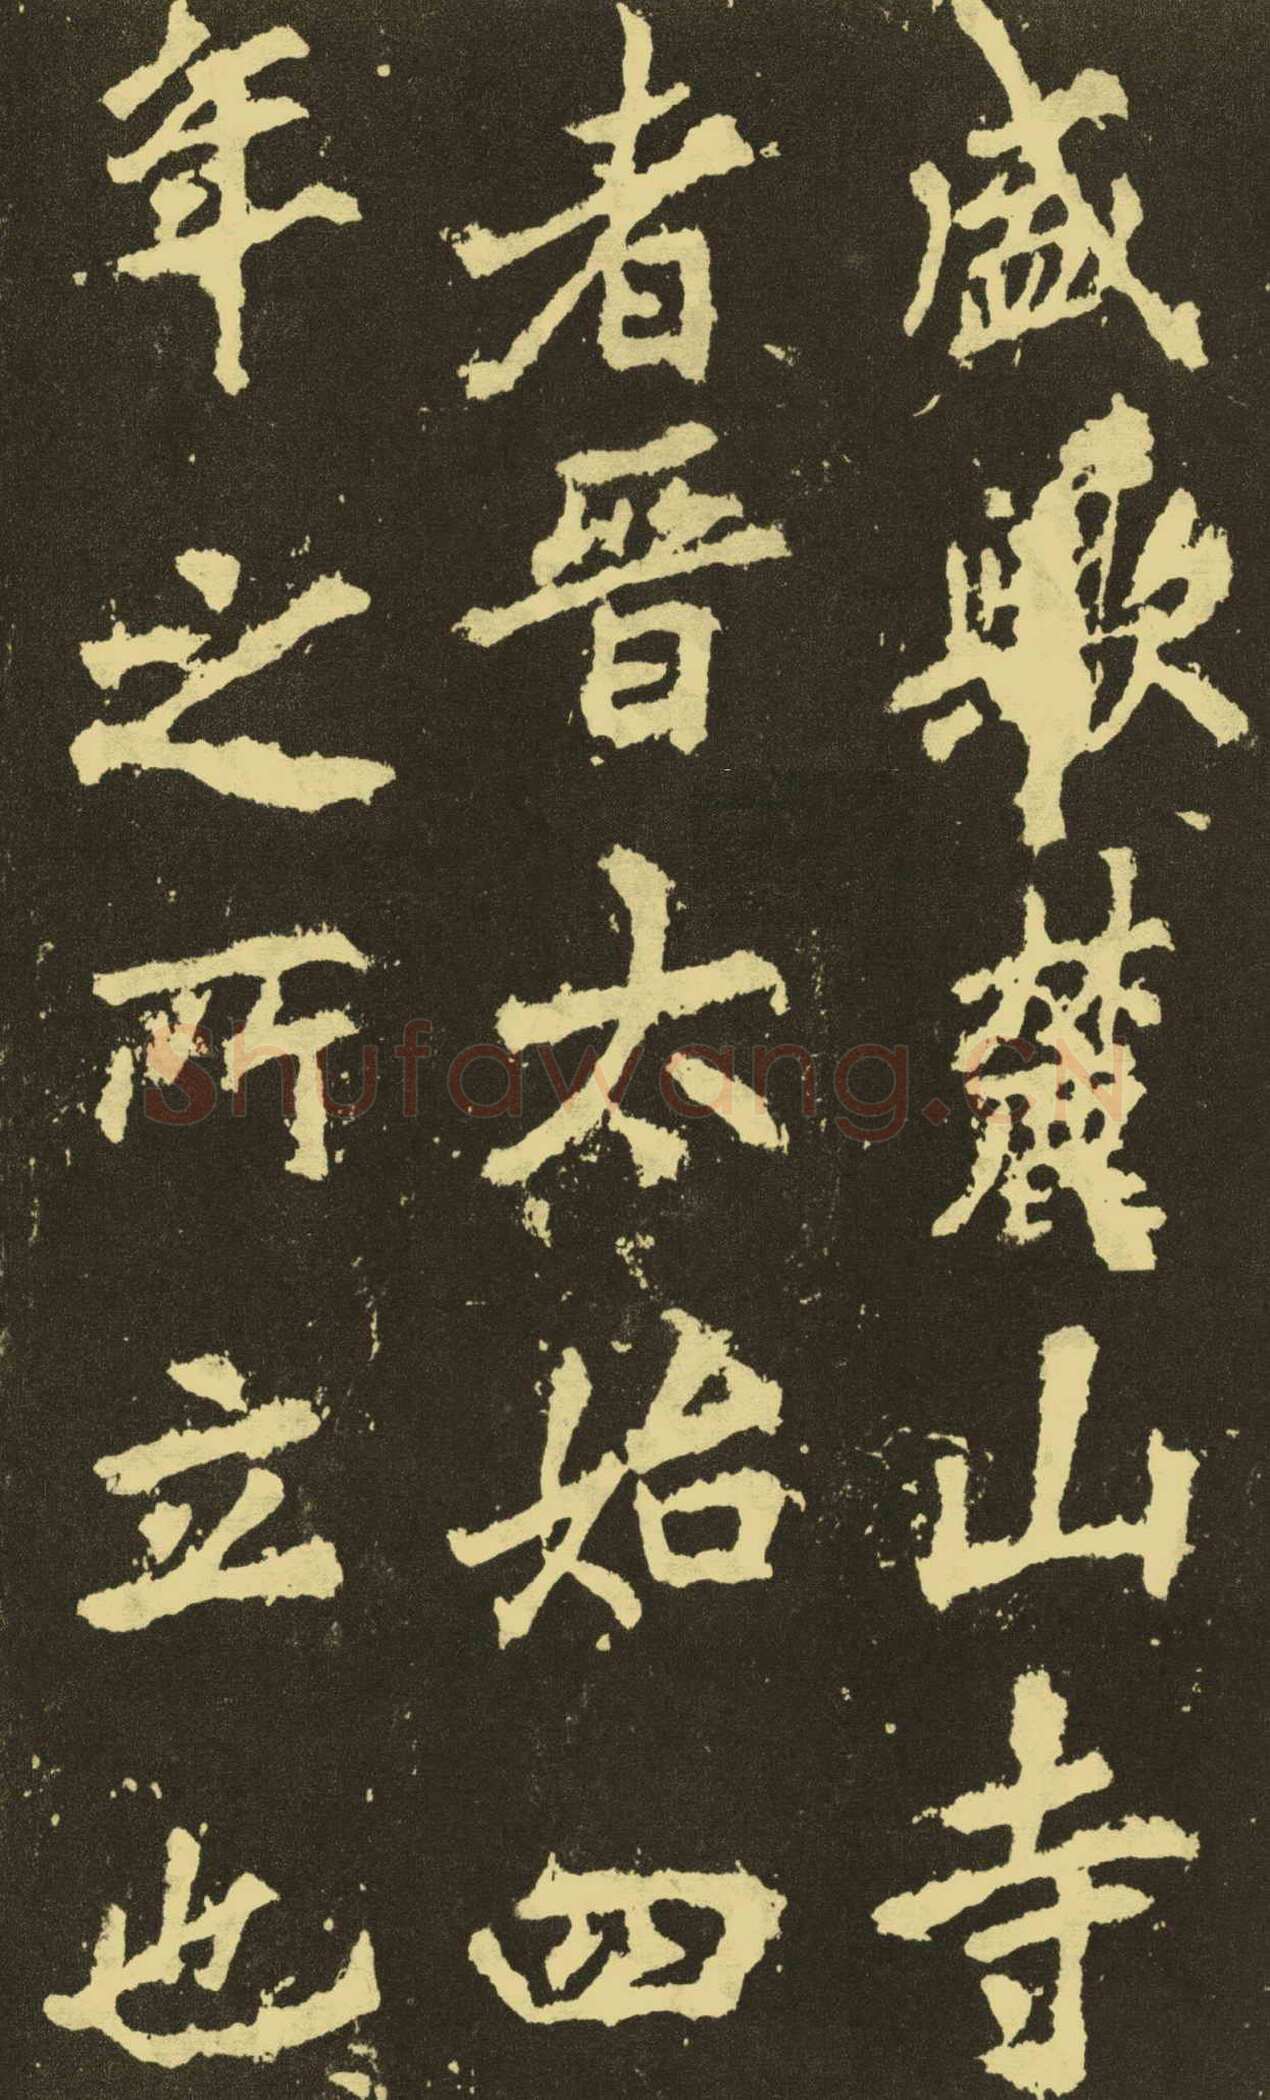 盛歟麓山寺
者晉太始四
年之所立也
Shufawang.CN